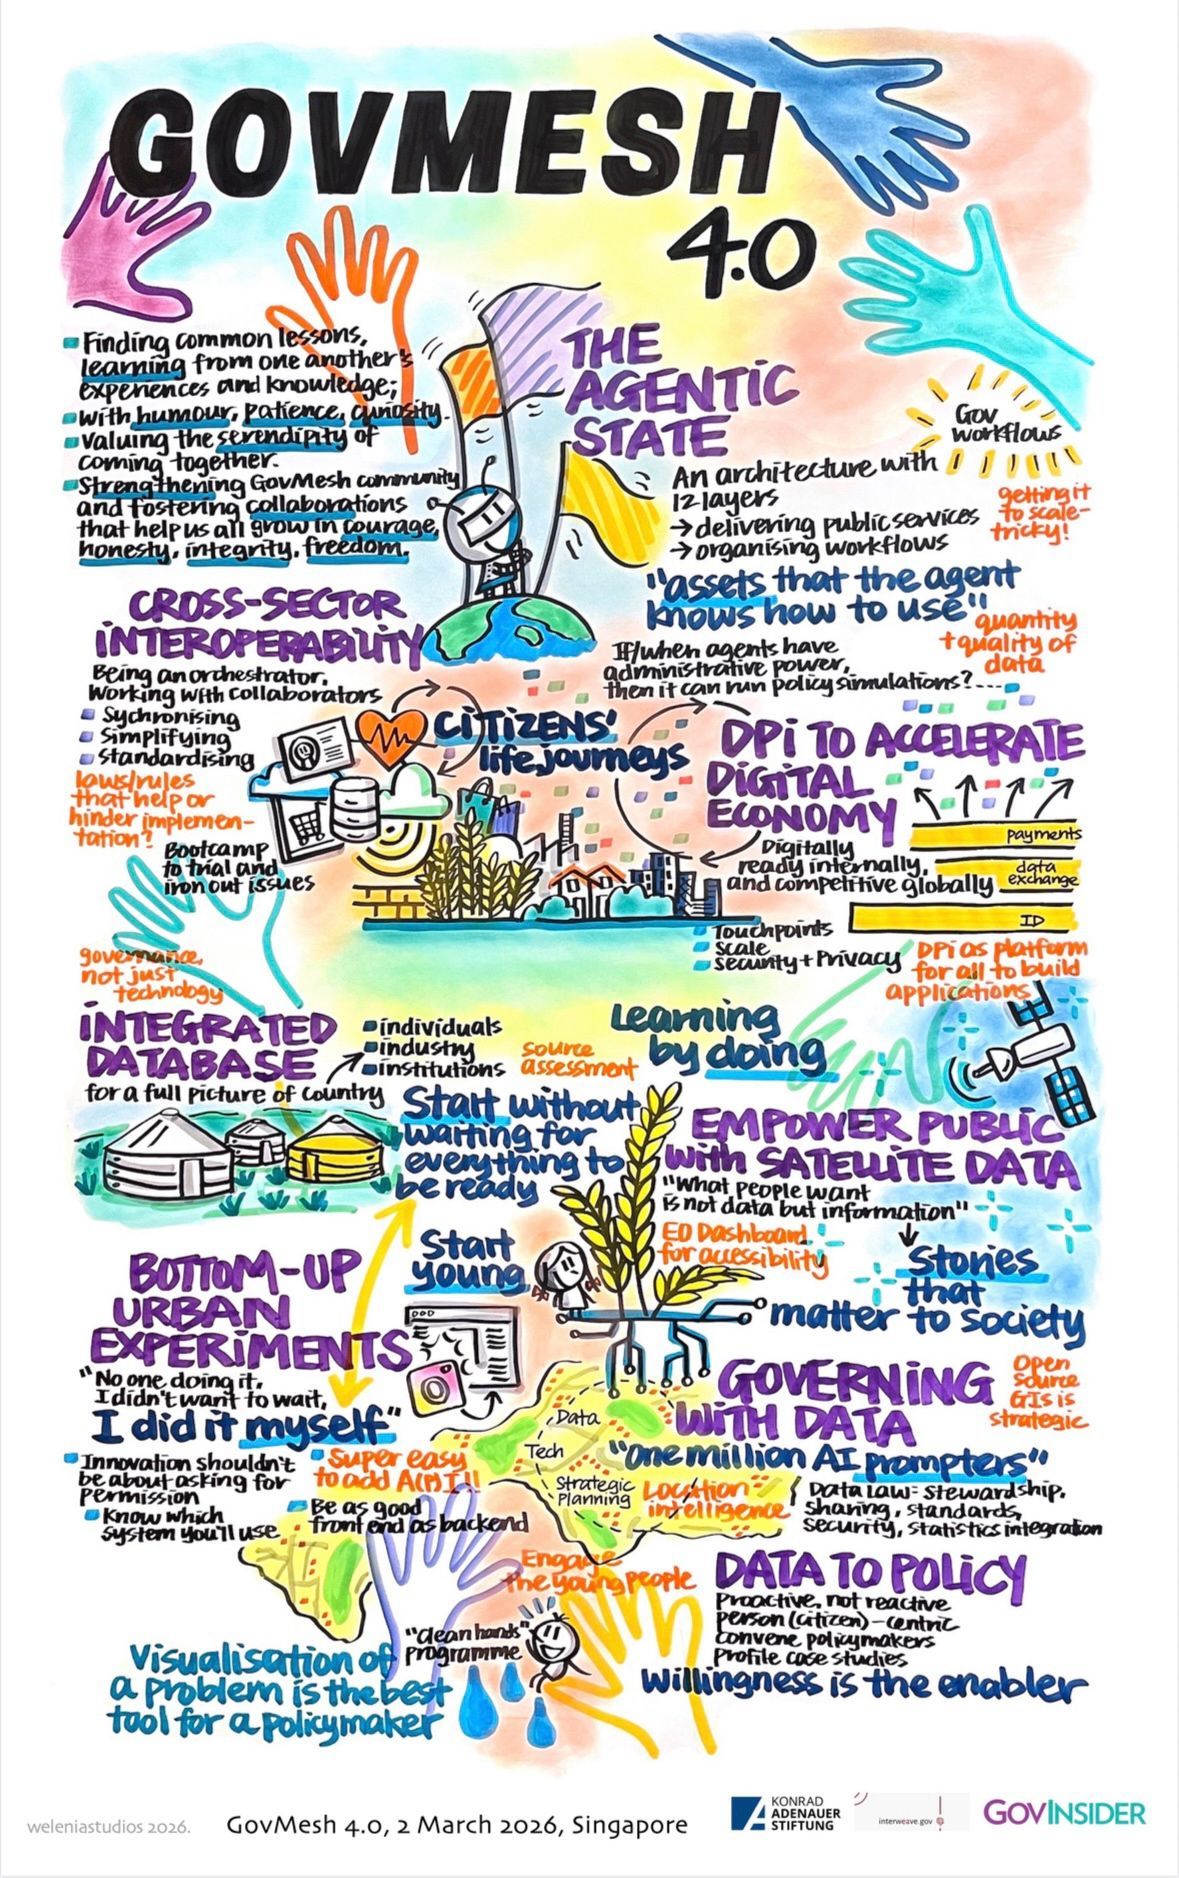 GOVMESH
4.0
Finding common lessons,
learning from one another's
experiences and knowledge;
with humour, patience, curiosity.
Valuing the serendipity of
coming together.
Strengthening GovMesh community
and fostering collaborations
that help us all grow in courage,
honesty, integrity, freedom.
THE
AGENTIC
STATE
Gov
workflows
An architecture with
12 layers
→ delivering public services
→ organising workflows
getting it
to scale-
tricky!
"assets that the agent
knows how to use"
quantity
+ quality of
data
If/when agents have
administrative power,
then it can run policy simulations?....
CROSS-SECTOR
INTEROPERABILITY
Being an orchestrator.
Working with collaborators
Sychronising
Simplifying
Standardising
laws/rules
that help or
hinder implemen-
tation?
Bootcamp
to trial and
iron out issues
governance,
not just
technology
CITIZENS'
life journeys
DPI TO ACCELERATE
DIGITAL
ECONOMY
payments
data
exchange
ID
Digitally
ready internally,
and competitive globally
Touchpoints
Scale
Security + Privacy
DPI as platform
for all to build
applications
INTEGRATED
DATABASE
for a full picture of country
individuals
industry
institutions
source
assessment
Learning
by doing
Start without
waiting for
everything to
be ready
EMPOWER PUBLIC
with SATELLITE DATA
"What people want
is not data but information"
EO Dashboard
for accessibility
Stories
that
matter to society
Start
young
BOTTOM-UP
URBAN
EXPERIMENTS
"No one doing it,
I didn't want to wait,
I did it myself"
Innovation shouldn't
be about asking for
permission
Know which
system you'll use
Super easy
to add A(n)I!!
Be as good
front end as backend
GOVERNING
WITH DATA
Open
Source
GIS is
strategic
Data
Tech
Strategic
Planning
"one million AI prompters"
Location
intelligence
Data Law: stewardship,
sharing, standards,
security, statistics integration
Engage
the young people
DATA TO POLICY
Proactive, not reactive
person (citizen)-centric
convene policymakers
Profile case studies
Willingness is the enabler
"clean hands"
programme
Visualisation of
a problem is the best
tool for a policymaker
weleniastudios 2026.
GovMesh 4.0, 2 March 2026, Singapore
KONRAD
ADENAUER
STIFTUNG
interweave.gov
GOVINSIDER